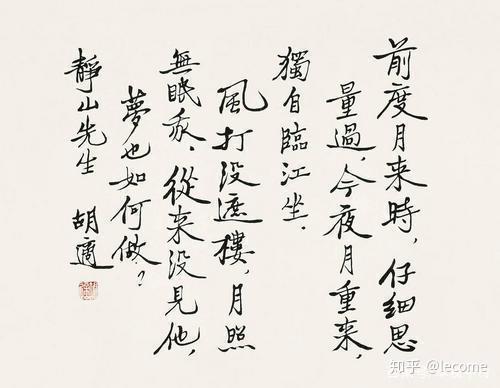 前度月来時，仔細思
量過，今夜月重来，
獨自臨江坐．
風打没遮樓，月照
無眠我．從来没見他，
夢也如何做？
靜山先生 胡適
知乎 @lecome